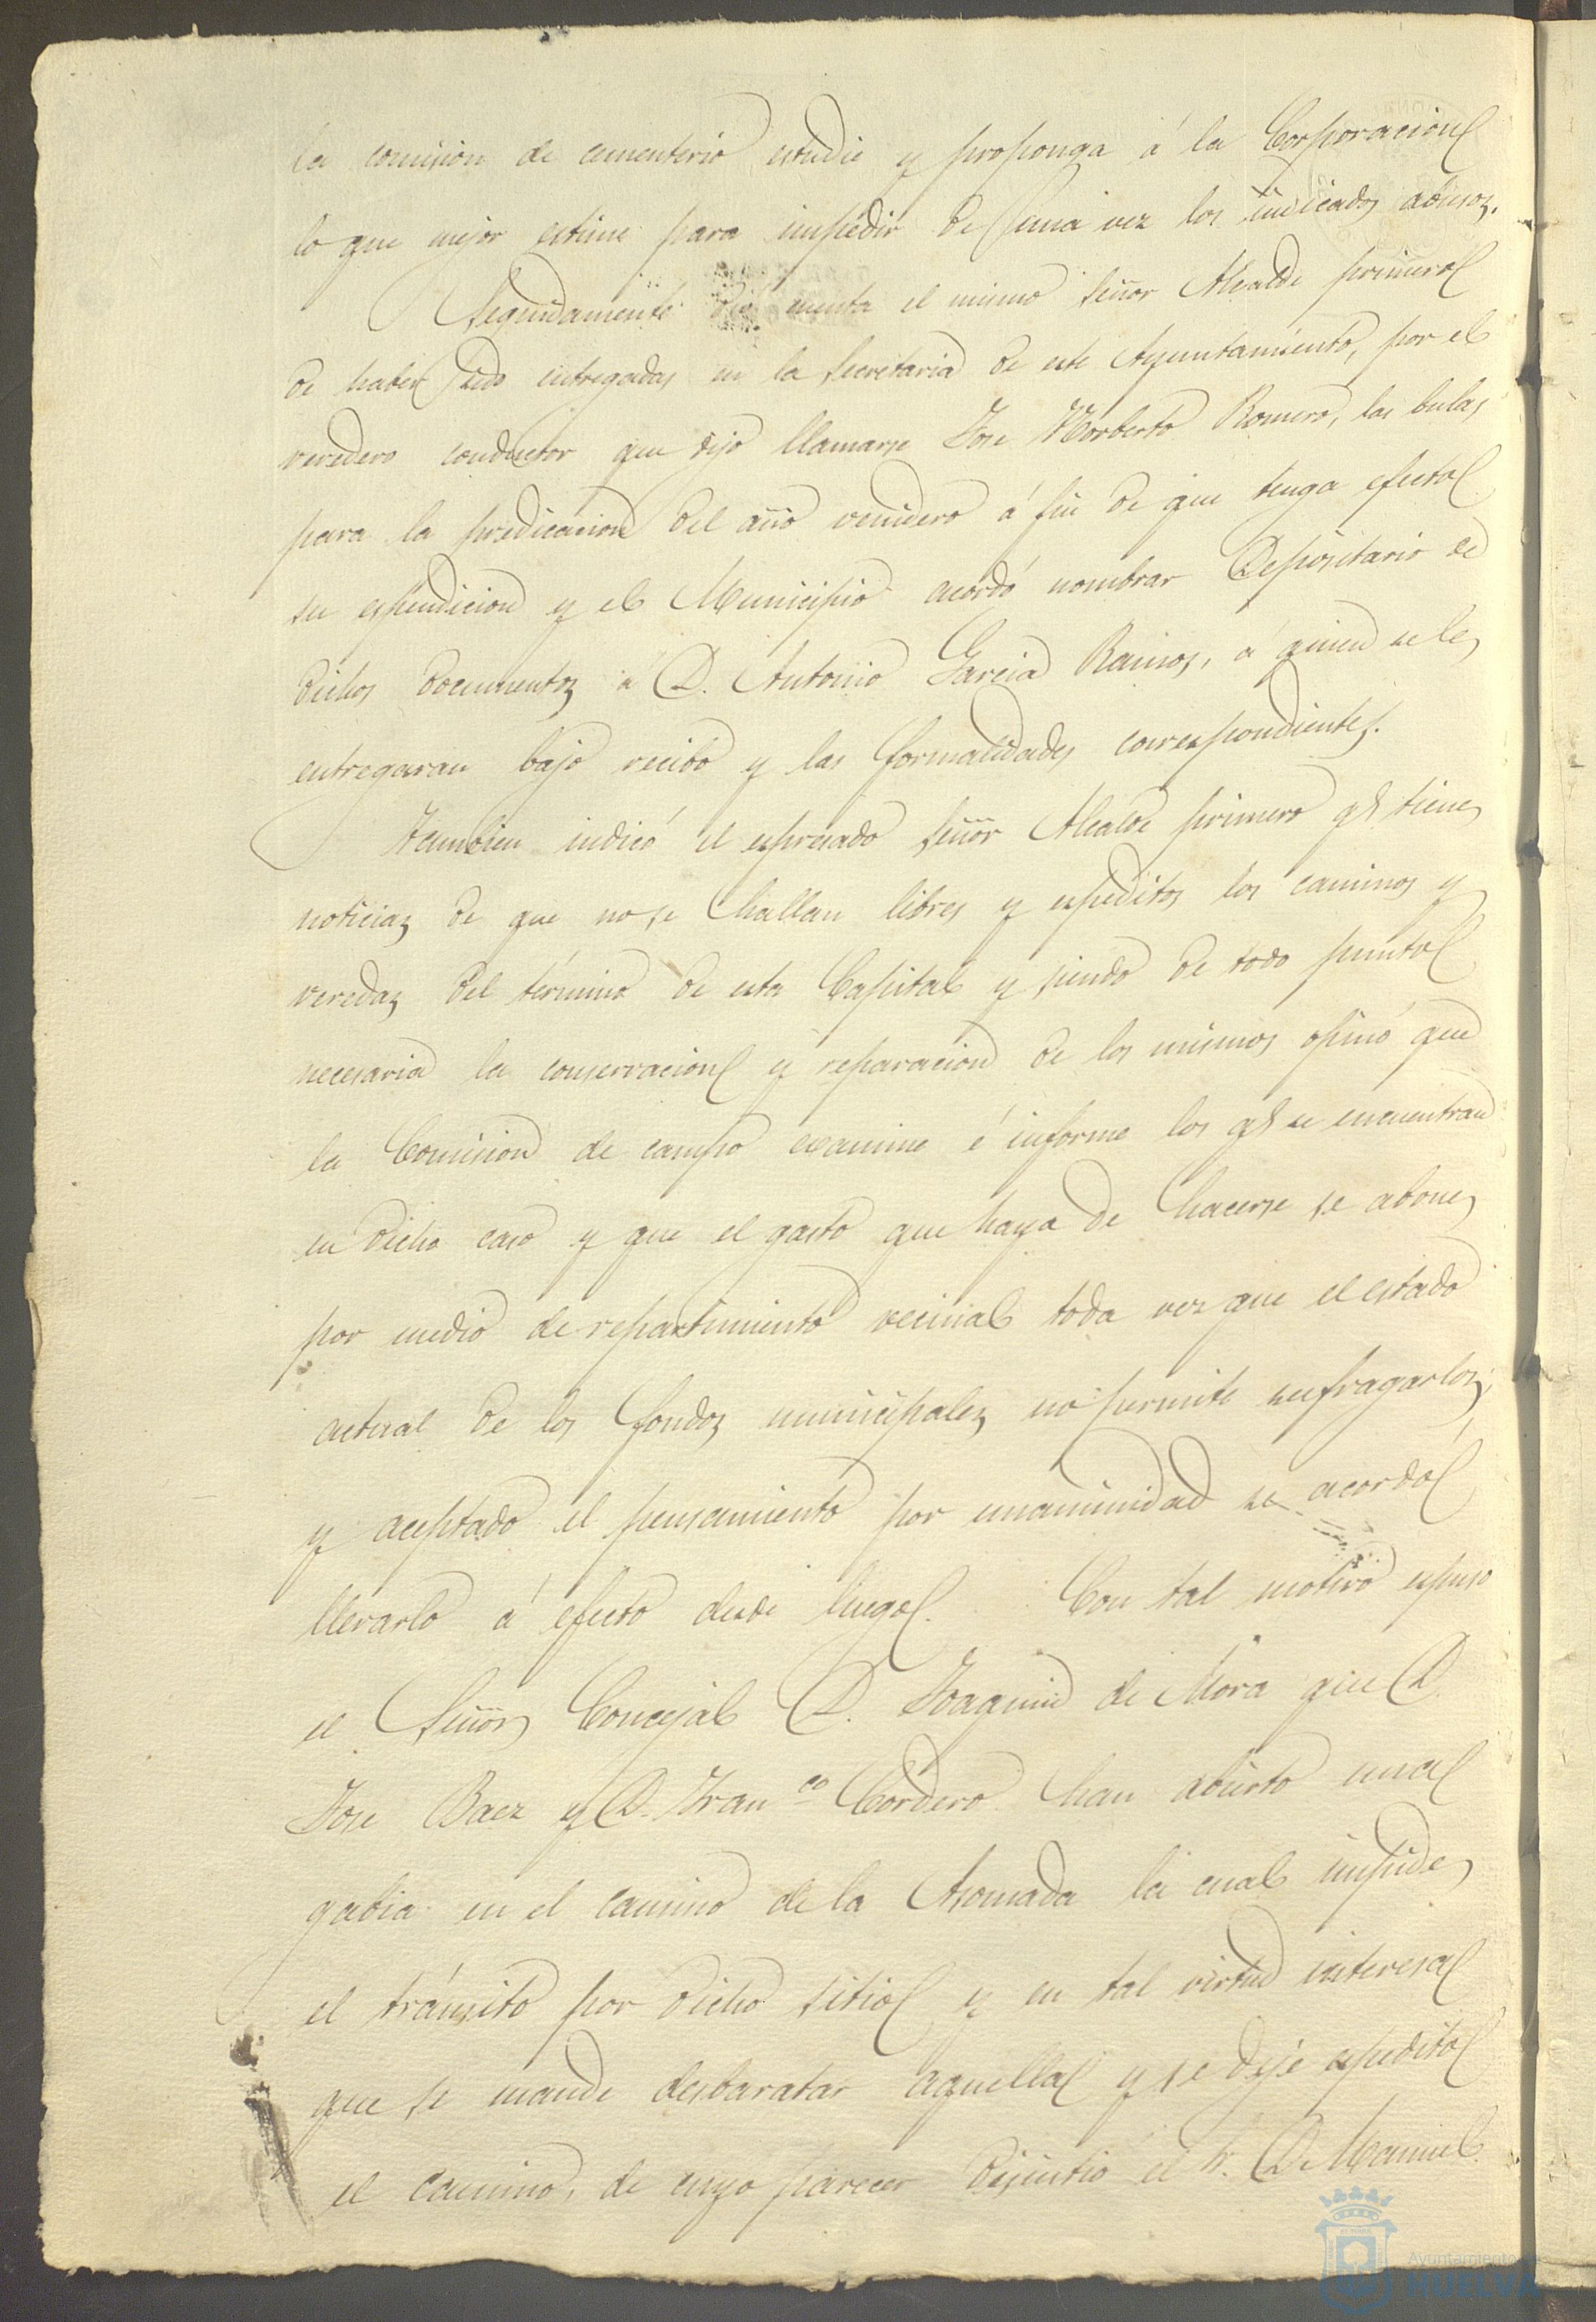 la comision de cementerio estudie y proponga á la Corporacion
lo que mejor estime para impedir de una vez los indicados abusos.
Seguidamente dió cuenta el mismo Señor Alcalde primero
de haber sido entregadas en la Secretaria de este Ayuntamiento, por el
veredero conductor que dijo llamarse Jose Norberto Romero, las bulas
para la predicacion del año venidero á fin de que tenga efecto
su espendicion y el Municipio acordó nombrar Depositario de
dichos documentos á D. Antonio Garcia Ramos, á quien se le
entregaran bajo recibo y las formalidades correspondientes.
Tambien indicó el espresado Señor Alcalde primero q.e tiene
noticias de que no se hallan libres y espeditos los caminos y
veredas del término de esta Capital y siendo de todo punto
necesaria la conservacion y reparacion de los mismos opinó que
la Comision de campo examine é informe los q.e se encuentran
en dicho caso y que el gasto que haya de hacerse se abone
por medio de repartimiento vecinal toda vez que el estado
actual de los fondos municipales no permite sufragarlos;
y aceptado el pensamiento por unanimidad se acordó
llevarlo á efecto desde luego. Con tal motivo espuso
el Señor Concejal D. Joaquin de Mora que D.
Jose Baez y D. Fran.co Cordero han abierto una
gabia en el camino de la Asomada la cual impide
el tránsito por dicho sitio y en tal virtud interesa
que se mande desbaratar aquella y se deje espedito
el camino, de cuyo parecer disintió el Sr. D. Manuel
Ayuntamiento
HUELVA